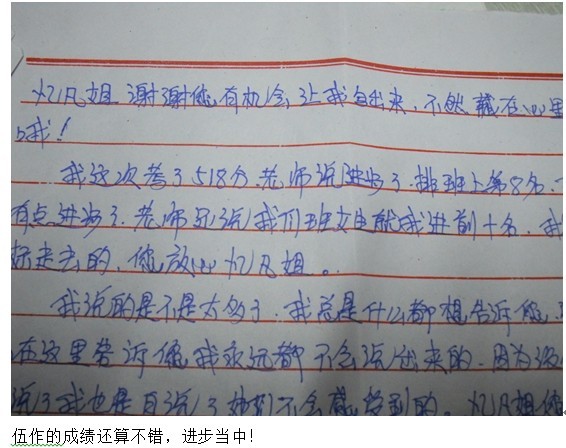 忆凡姐 谢谢您有机会让我自出来、不然藏在心里
的我！
我这次考了518分.老师说进步了.排班上第8名.
有点进步了.老师还说我们班女生就我进前十名.我
标走去的.您放心忆凡姐。
我说的是不是太多了.我总是什么都想告诉您.
在这里告诉您我永远都不会说出来的.因为
说了我也是白说了她们不会感受到的.忆凡姐您
伍作的成绩还算不错，进步当中!